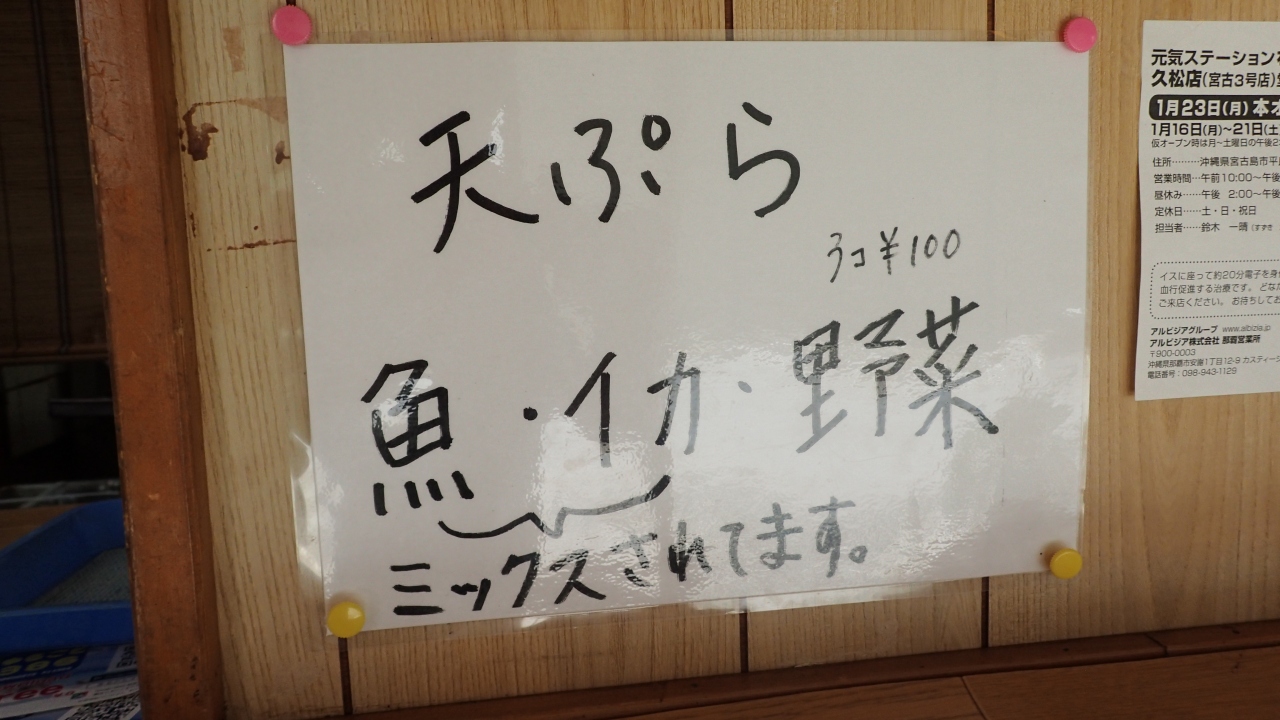 天ぷら
3コ¥100
魚・イカ・野菜
ミックスされてます。
元気ステーション
久松店(宮古3号店)
1月23日(月)本オ
1月16日(月)~21日(土
仮オープン時は月~土曜日の午後2
住所………沖縄県宮古島市平
営業時間…午前10:00~午後
昼休み……午後 2:00~午後
定休日……土・日・祝日
担当者……鈴木 一晴(すずき
イスに座って約20分電子を身
血行促進する治療です。どな
ご来店ください。お待ちして
アルビジアグループ www.albizia.jp
アルビジア株式会社 那覇営業所
〒900-0003
沖縄県那覇市安謝1丁目12-9 カスティー
電話番号:098-943-1129